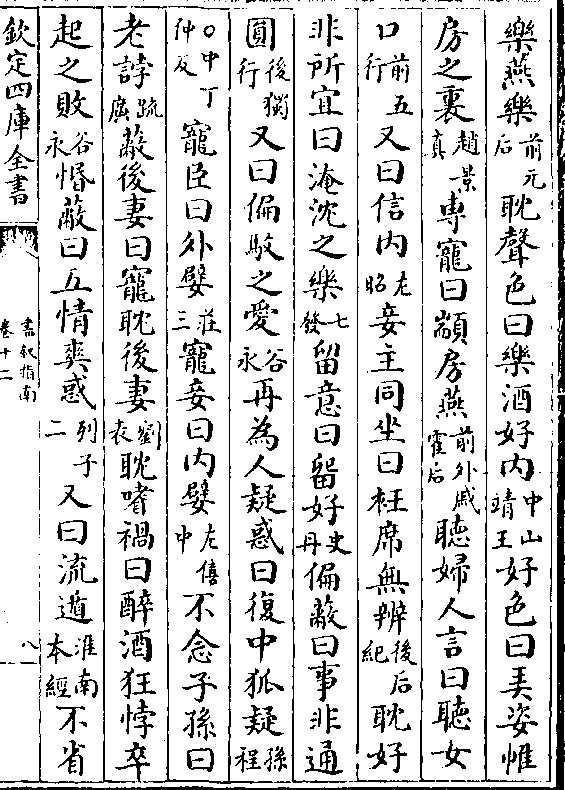 樂燕樂前元后耽聲色曰樂酒好内中山靖王好色曰美姿帷
房之裏趙景真專寵曰顓房燕前外戚霍后聽婦人言曰聽女
口前五行又曰信内左昭妾主同坐曰袵席無辨後后紀耽好
非所宜曰淹沈之樂七發留意曰留好史丹偏蔽曰事非通
圓後獨行又曰偏駮之愛谷永再為人疑惑曰復中狐疑孫程
○中丁仲反寵臣曰外嬖莊三寵妾曰内嬖左僖中不念子孫曰
老誖疏廣蔽後妻曰寵耽後妻劉表耽嗜禍曰醉酒狂悖卒
起之敗谷永惛蔽曰五情爽惑列子二又曰流遁淮南本經不省
欽定四庫全書
書叙指南
卷十二
八